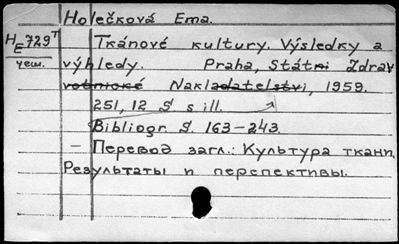 Holečková Ema.
HE 729т Tkánové kultury. Výsledky a
чеш. výhledy. Praha, Státni Zdrav
votnické Nakladatelstvi, 1959.
251, 12 S s ill.
Bibliogr. S. 163-243.
- Перевод загл.: Культура ткани,
Результаты и перспективы.